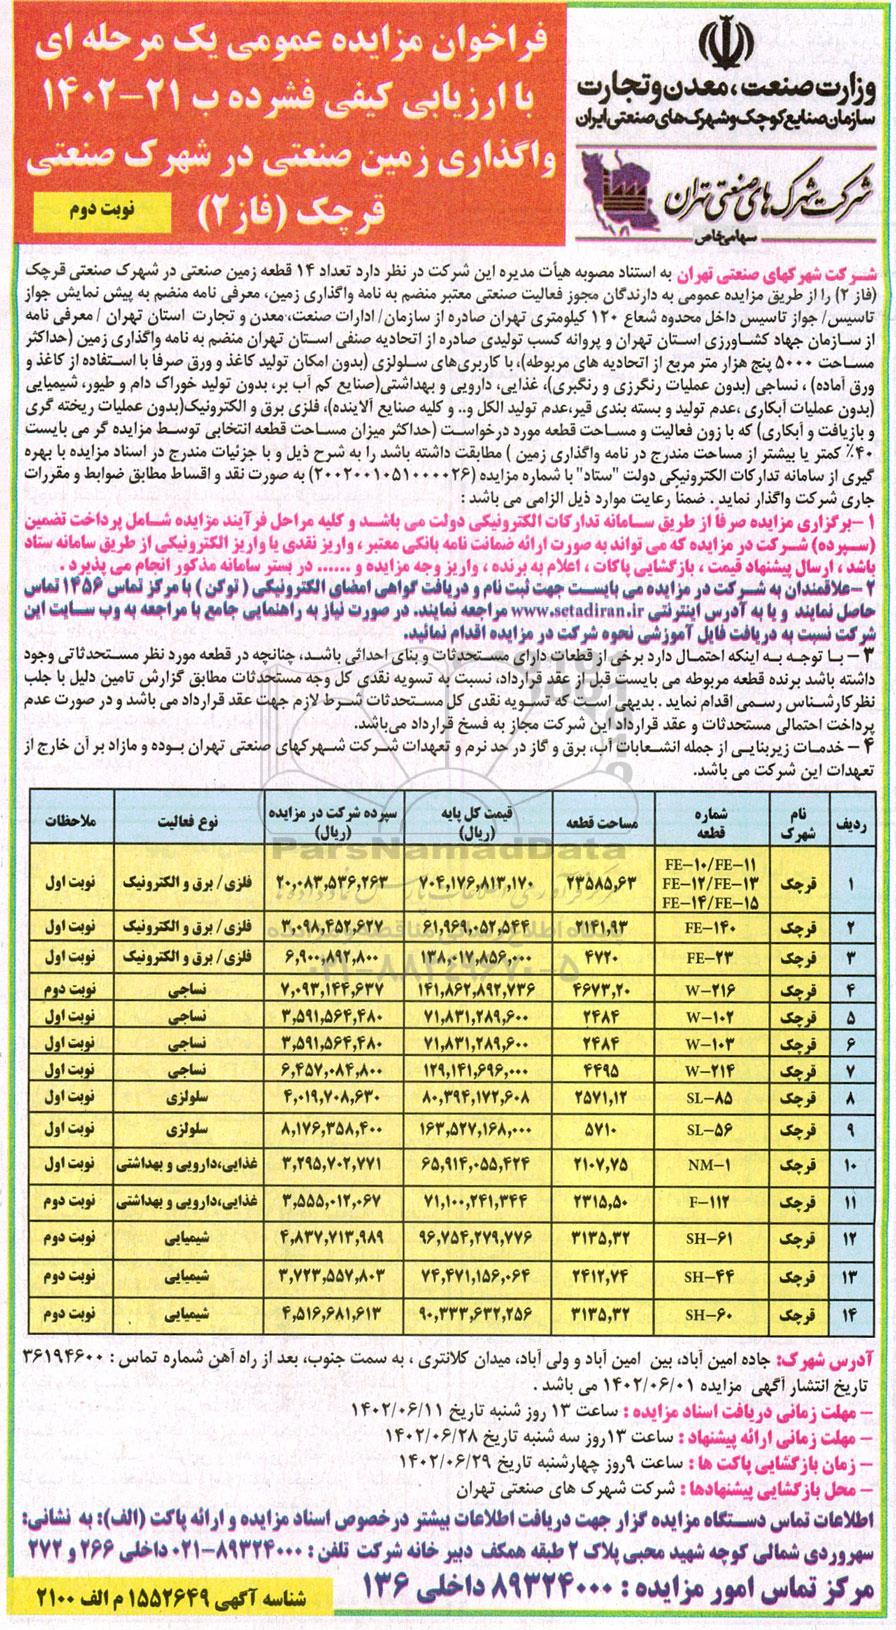 وزارت صنعت، معدن و تجارت
سازمان صنایع کوچک و شهرک‌های صنعتی ایران
شرکت شهرک های صنعتی تهران
سهامی خاص
فراخوان مزایده عمومی یک مرحله ای
با ارزیابی کیفی فشرده ب ۲۱-۱۴۰۲
واگذاری زمین صنعتی در شهرک صنعتی
قرچک (فاز۲)
نوبت دوم
شرکت شهرکهای صنعتی تهران به استناد مصوبه هیأت مدیره این شرکت در نظر دارد تعداد ۱۴ قطعه زمین صنعتی در شهرک صنعتی قرچک
(فاز ۲) را از طریق مزایده عمومی به دارندگان مجوز فعالیت صنعتی معتبر منضم به نامه واگذاری زمین، معرفی نامه منضم به پیش نمایش جواز
تاسیس/ جواز تاسیس داخل محدوه شعاع ۱۲۰ کیلومتری تهران صادره از سازمان/ ادارات صنعت،معدن و تجارت استان تهران / معرفی نامه
از سازمان جهاد کشاورزی استان تهران و پروانه کسب تولیدی صادره از اتحادیه صنفی استان تهران منضم به نامه واگذاری زمین (حداکثر
مساحت ۵۰۰۰ پنج هزار متر مربع از اتحادیه های مربوطه)، با کاربری‌های سلولزی (بدون امکان تولید کاغذ و ورق صرفا با استفاده از کاغذ و
ورق آماده) ، نساجی (بدون عملیات رنگرزی و رنگبری)، غذایی، دارویی و بهداشتی(صنایع کم آب بر، بدون تولید خوراک دام و طیور، شیمیایی
(بدون عملیات آبکاری ،عدم تولید و بسته بندی قیر،عدم تولید الکل و.. و کلیه صنایع آلاینده)، فلزی برق و الکترونیک(بدون عملیات ریخته گری
و بازیافت و آبکاری) که با زون فعالیت و مساحت قطعه مورد درخواست (حداکثر میزان مساحت قطعه انتخابی توسط مزایده گر می بایست
۴۰٪ کمتر یا بیشتر از مساحت مندرج در نامه واگذاری زمین ) مطابقت داشته باشد را به شرح ذیل و با جزئیات مندرج در اسناد مزایده با بهره
گیری از سامانه تدارکات الکترونیکی دولت "ستاد" با شماره مزایده (۲۰۰۲۰۰۱۰۵۱۰۰۰۰۲۶) به صورت نقد و اقساط مطابق ضوابط و مقررات
جاری شرکت واگذار نماید . ضمنا رعایت موارد ذیل الزامی می باشد :
۱ -برگزاری مزایده صرفاً از طریق سامانه تدارکات الکترونیکی دولت می باشد و کلیه مراحل فرآیند مزایده شامل پرداخت تضمین
(سپرده) شرکت در مزایده که می تواند به صورت ارائه ضمانت نامه بانکی معتبر ، واریز نقدی یا واریز الکترونیکی از طریق سامانه ستاد
باشد ، ارسال پیشنهاد قیمت ، بازگشایی پاکات ، اعلام به برنده ، واریز وجه مزایده و ...... در بستر سامانه مذکور انجام می پذیرد .
۲ -علاقمندان به شرکت در مزایده می بایست جهت ثبت نام و دریافت گواهی امضای الکترونیکی ( توکن ) با مرکز تماس ۱۴۵۶ تماس
حاصل نمایند و یا به آدرس اینترنتی www.setadiran.ir مراجعه نمایند. در صورت نیاز به راهنمایی جامع با مراجعه به وب سایت این
شرکت نسبت به دریافت فایل آموزشی نحوه شرکت در مزایده اقدام نمائید.
۳ - با توجه به اینکه احتمال دارد برخی از قطعات دارای مستحدثات و بنای احداثی باشد، چنانچه در قطعه مورد نظر مستحدثاتی وجود
داشته باشد برنده قطعه مربوطه می بایست قبل از عقد قرارداد، نسبت به تسویه نقدی کل وجه مستحدثات مطابق گزارش تامین دلیل با جلب
نظر کارشناس رسمی اقدام نماید . بدیهی است که تسویه نقدی کل مستحدثات شرط لازم جهت عقد قرارداد می باشد و در صورت عدم
پرداخت احتمالی مستحدثات و عقد قرارداد این شرکت مجاز به فسخ قرارداد می‌باشد.
۴ - خدمات زیربنایی از جمله انشعابات آب، برق و گاز در حد نرم و تعهدات شرکت شهرکهای صنعتی تهران بوده و مازاد بر آن خارج از
تعهدات این شرکت می باشد.
ردیف نام شهرک شماره قطعه مساحت قطعه قیمت کل پایه (ریال) سپرده شرکت در مزایده (ریال) نوع فعالیت ملاحظات
۱ قرچک FE-۱۰/FE-۱۱ FE-۱۲/FE-۱۳ FE-۱۴/FE-۱۵ ۲۳۵۸۵,۶۳ ۷۰۴,۱۷۶,۸۱۳,۱۷۰ ۲۰,۰۸۳,۵۳۶,۲۶۳ فلزی/ برق و الکترونیک نوبت اول
۲ قرچک FE-۱۴۰ ۲۱۴۱,۹۳ ۶۱,۹۶۹,۰۵۲,۵۴۴ ۳,۰۹۸,۴۵۲,۶۲۷ فلزی/ برق و الکترونیک نوبت اول
۳ قرچک FE-۲۳ ۴۷۲۰ ۱۳۸,۰۱۷,۸۵۶,۰۰۰ ۶,۹۰۰,۸۹۲,۸۰۰ فلزی/ برق و الکترونیک نوبت اول
۴ قرچک W-۲۱۶ ۴۶۷۳,۲۰ ۱۴۱,۸۶۲,۸۹۲,۷۳۶ ۷,۰۹۳,۱۴۴,۶۳۷ نساجی نوبت دوم
۵ قرچک W-۱۰۲ ۲۴۸۴ ۷۱,۸۳۱,۲۸۹,۶۰۰ ۳,۵۹۱,۵۶۴,۴۸۰ نساجی نوبت اول
۶ قرچک W-۱۰۳ ۲۴۸۴ ۷۱,۸۳۱,۲۸۹,۶۰۰ ۳,۵۹۱,۵۶۴,۴۸۰ نساجی نوبت اول
۷ قرچک W-۲۱۴ ۴۴۹۵ ۱۲۹,۱۴۱,۶۹۶,۰۰۰ ۶,۴۵۷,۰۸۴,۸۰۰ نساجی نوبت اول
۸ قرچک SL-۸۵ ۲۵۷۱,۱۲ ۸۰,۳۹۴,۱۷۲,۶۰۸ ۴,۰۱۹,۷۰۸,۶۳۰ سلولزی نوبت اول
۹ قرچک SL-۵۶ ۵۷۱۰ ۱۶۳,۵۲۷,۱۶۸,۰۰۰ ۸,۱۷۶,۳۵۸,۴۰۰ سلولزی نوبت اول
۱۰ قرچک NM-۱ ۲۱۰۷,۷۵ ۶۵,۹۱۴,۰۵۵,۴۲۴ ۳,۲۹۵,۷۰۲,۷۷۱ غذایی،دارویی و بهداشتی نوبت اول
۱۱ قرچک F-۱۱۲ ۲۳۱۵,۵۰ ۷۱,۱۰۰,۲۴۱,۳۴۴ ۳,۵۵۵,۰۱۲,۰۶۷ غذایی،دارویی و بهداشتی نوبت دوم
۱۲ قرچک SH-۶۱ ۳۱۳۵,۳۲ ۹۶,۷۵۴,۲۷۹,۷۷۶ ۴,۸۳۷,۷۱۳,۹۸۹ شیمیایی نوبت دوم
۱۳ قرچک SH-۴۴ ۲۴۱۲,۷۴ ۷۴,۴۷۱,۱۵۶,۰۶۴ ۳,۷۲۳,۵۵۷,۸۰۳ شیمیایی نوبت دوم
۱۴ قرچک SH-۶۰ ۳۱۳۵,۳۲ ۹۰,۳۳۳,۶۳۲,۲۵۶ ۴,۵۱۶,۶۸۱,۶۱۳ شیمیایی نوبت دوم
ParsNamadData
۰۲۱-۸۸۳۴۹۶۷۰-۵
آدرس شهرک: جاده امین آباد، بین امین آباد و ولی آباد، میدان کلانتری ، به سمت جنوب، بعد از راه آهن شماره تماس : ۳۶۱۹۴۶۰۰
تاریخ انتشار آگهی مزایده ۱۴۰۲/۰۶/۰۱ می باشد .
- مهلت زمانی دریافت اسناد مزایده : ساعت ۱۳ روز شنبه تاریخ ۱۴۰۲/۰۶/۱۱
- مهلت زمانی ارائه پیشنهاد : ساعت ۱۳روز سه شنبه تاریخ ۱۴۰۲/۰۶/۲۸
- زمان بازگشایی پاکت ها : ساعت ۹روز چهارشنبه تاریخ ۱۴۰۲/۰۶/۲۹
- محل بازگشایی پیشنهادها : شرکت شهرک های صنعتی تهران
اطلاعات تماس دستگاه مزایده گزار جهت دریافت اطلاعات بیشتر درخصوص اسناد مزایده و ارائه پاکت (الف): به نشانی:
سهروردی شمالی کوچه شهید محبی پلاک ۲ طبقه همکف دبیر خانه شرکت تلفن : ۸۹۳۲۴۰۰۰-۰۲۱ داخلی ۲۶۶ و ۲۷۲
مرکز تماس امور مزایده : ۸۹۳۲۴۰۰۰ داخلی ۱۳۶
شناسه آگهی ۱۵۵۲۶۴۹ م الف ۲۱۰۰